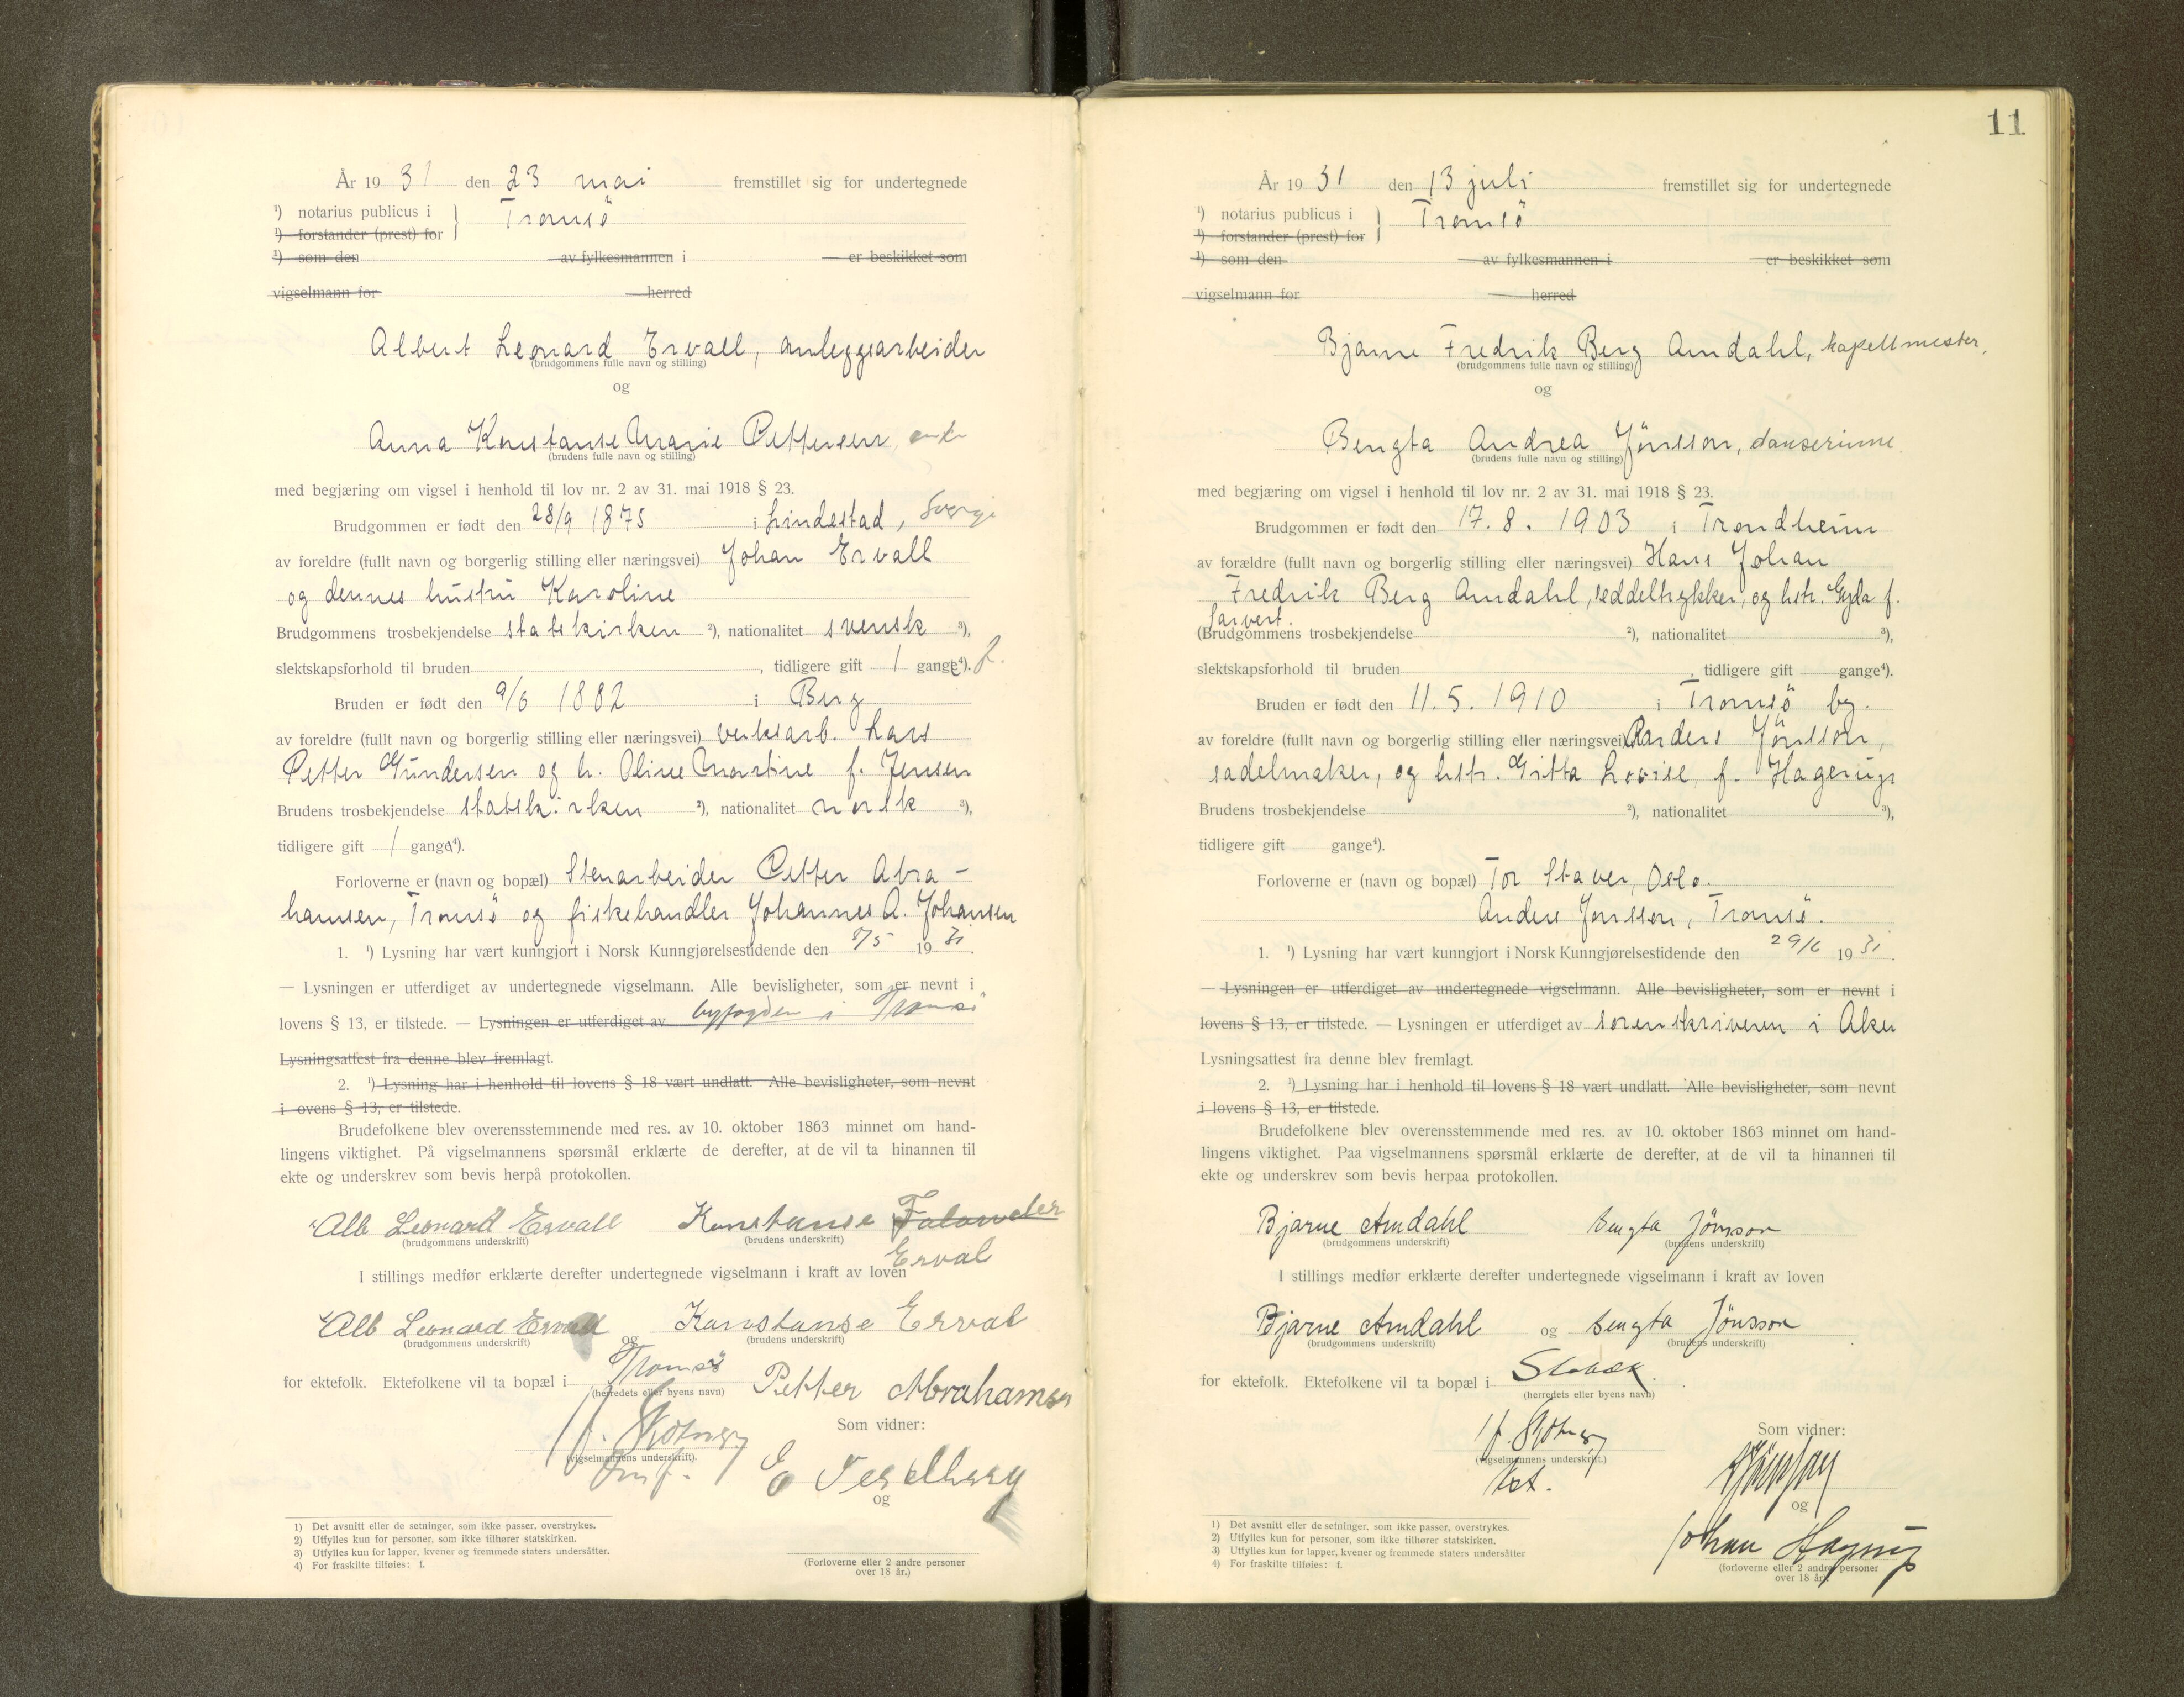 År 1931 den 23 mai fremstillet sig for undertegnede
¹) notarius publicus i } Tromsö
¹) forstander (prest) for
¹) som den av fylkesmannen i er beskikket som
vigselmann for herred
Albert Leonard Ervall, anleggsarbeider
(brudgommens fulle navn og stilling)
og
Anna Konstanse Marie Pettersen, enke
(brudens fulle navn og stilling)
med begjæring om vigsel i henhold til lov nr. 2 av 31. mai 1918 § 23.
Brudgommen er født den 28/9 1875 i Lindestad, Sverige
av foreldre (fullt navn og borgerlig stilling eller næringsvei) Johan Ervall
og dennes hustru Karoline
Brudgommens trosbekjendelse statskirken ²), nationalitet svensk ³),
slektskapsforhold til bruden , tidligere gift 1 gange⁴). f.
Bruden er født den 9/6 1882 i Berg
av foreldre (fullt navn og borgerlig stilling eller næringsvei) verksarb. Lars
Petter Gundersen og h. Oline Martine f. Jensen
Brudens trosbekjendelse statskirken ²), nationalitet norsk ³),
tidligere gift 1 gange⁴).
Forloverne er (navn og bopæl) Stenarbeider Petter Abra-
hamsen, Tromsö og fiskehandler Johannes A. Johansen
1. ¹) Lysning har vært kunngjort i Norsk Kunngjørelsestidende den 8/5 1931.
— Lysningen er utferdiget av undertegnede vigselmann. Alle bevisligheter, som er nevnt i
lovens § 13, er tilstede. — Lysningen er utferdiget av byfogden i Tromsö
Lysningsattest fra denne blev fremlagt.
2. ¹) Lysning har i henhold til lovens § 18 vært undlatt. Alle bevisligheter, som nevnt
i ovens § 13, er tilstede.
Brudefolkene blev overensstemmende med res. av 10. oktober 1863 minnet om hand-
lingens viktighet. På vigselmannens spørsmål erklærte de derefter, at de vil ta hinannen til
ekte og underskrev som bevis herpå protokollen.
Alb Leonard Ervall Konstanse
(brudgommens underskrift) (brudens underskrift)
Erval
I stillings medfør erklærte derefter undertegnede vigselmann i kraft av loven
Alb Leonard Ervall og Konstanse Erval
(brudgommens underskrift) (brudens underskrift)
for ektefolk. Ektefolkene vil ta bopæl i Tromsö Petter Abrahamsen
(herredets eller byens navn)
Som vidner:
(vigselmannens underskrift).
og
1) Det avsnitt eller de setninger, som ikke passer, overstrykes.
2) Utfylles kun for personer, som ikke tilhører statskirken.
3) Utfylles kun for lapper, kvener og fremmede staters undersåtter.
4) For fraskilte tilføies: f.
(Forloverne eller 2 andre personer
over 18 år.)
11
År 1931 den 13 juli fremstillet sig for undertegnede
¹) notarius publicus i } Tromsö
¹) forstander (prest) for
¹) som den av fylkesmannen i er beskikket som
vigselmann for herred
Bjarne Fredrik Berg Amdahl, kapellmester,
(brudgommens fulle navn og stilling)
og
Bengta Andrea Jönsson, danserinne.
(brudens fulle navn og stilling)
med begjæring om vigsel i henhold til lov nr. 2 av 31. mai 1918 § 23.
Brudgommen er født den 17.8.1903 i Trondheim
av forældre (fullt navn og borgerlig stilling eller næringsvei) Hans Johan
Fredrik Berg Amdahl, seddeltrykker, og hstr. Gyda f.
(Brudgommens trosbekjendelse ²), nationalitet ³),
slektskapsforhold til bruden , tidligere gift gange⁴).
Bruden er født den 11.5.1910 i Tromsö by.
av foreldre (fullt navn og borgerlig stilling eller næringsvei) Anders Jönsson,
sadelmaker, og hstr. Gitta Lovise, f. Hagerup
Brudens trosbekjendelse ²), nationalitet ³),
tidligere gift gange⁴).
Forloverne er (navn og bopæl) Tor Staver, Oslo.
Anders Jonsson, Tromsö.
1. ¹) Lysning har vært kunngjort i Norsk Kunngjørelsestidende den 29/6 1931.
— Lysningen er utferdiget av undertegnede vigselmann. Alle bevisligheter, som er nevnt i
lovens § 13, er tilstede. — Lysningen er utferdiget av sorenskriveren i Aker
Lysningsattest fra denne blev fremlagt.
2. ¹) Lysning har i henhold til lovens § 18 vært undlatt. Alle bevisligheter, som nevnt
i lovens § 13, er tilstede.
Brudefolkene blev overensstemmende med res. av 10. oktober 1863 minnet om hand-
lingens viktighet. Paa vigselmannens spørsmål erklærte de derefter, at de vil ta hinannen til
ekte og underskrev som bevis herpaa protokollen.
Bjarne Amdahl Bengta Jönsson
(brudgommens underskrift) (brudens underskrift)
I stillings medfør erklærte derefter undertegnede vigselmann i kraft av loven
Bjarne Amdahl og Bengta Jönsson
(brudgommens underskrift) (brudens underskrift)
for ektefolk. Ektefolkene vil ta bopæl i Stabæk.
(herredets eller byens navn)
Som vidner:
(vigselmannens underskrift.)
og
Johan Hagerup
1) Det avsnitt eller de setninger, som ikke passer, overstrykes.
2) Utfylles kun for personer, som ikke tilhører statskirken.
3) Utfylles kun for lapper, kvener og fremmede staters undersåtter
4) For fraskilte tilføies: f.
(forloverne eller 2 andre personer
over 18 år.)